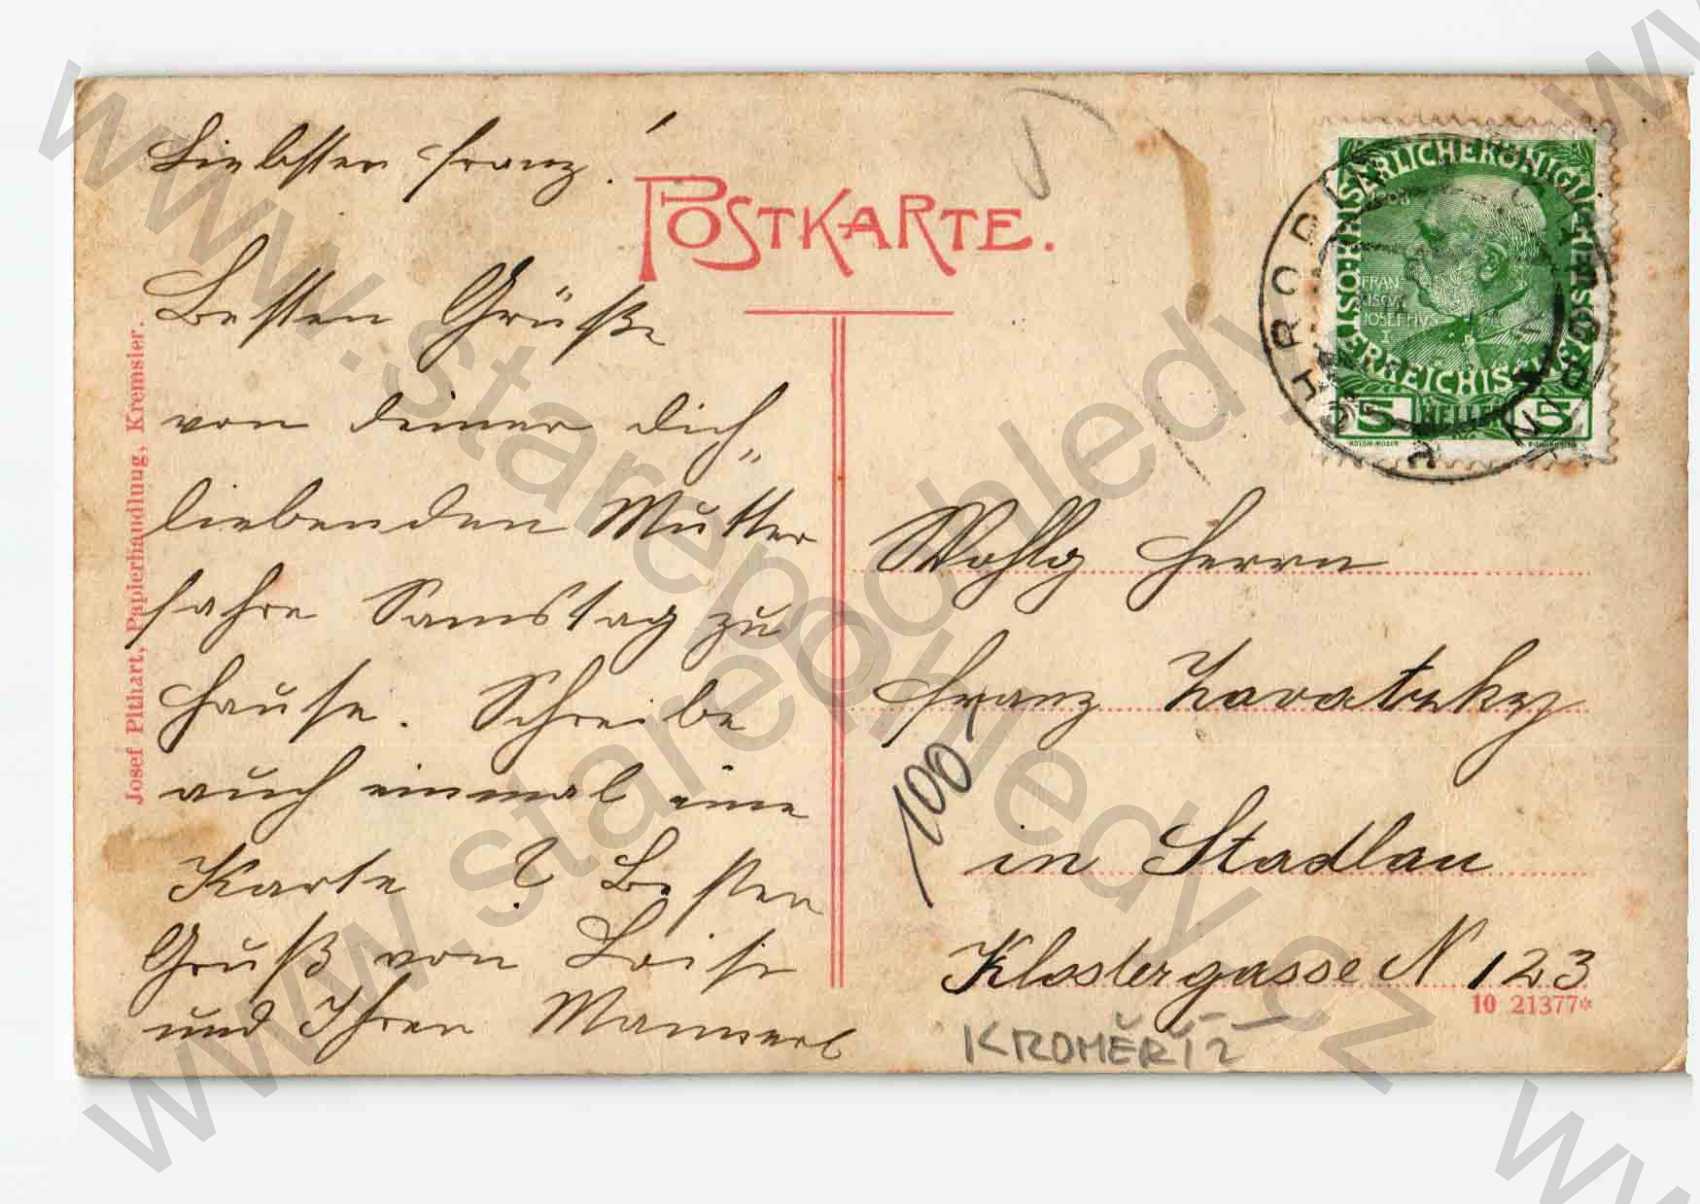 Liebster Franz!
POSTKARTE.
Besten Grüße
von deiner dich„
liebenden Mutter
fahre Samstag zu
Hause. Schreibe
auch einmal eine
Karte ? Besten
Gruß von Loise
und Ihren Mannerl
Josef Pithart, Papierhandlung, Kremsier.
KAISERLICHE KÖNIGLICHE ÖSTERREICHISCHE POST
FRAN
CISCVS
JOSEPHVS
I
5 HELLER 5
Wohlg Herrn
Franz Zavatzky
in Stadlau
Klostergasse N 123
10 21377*
100
KROMĚŘÍŽ
www.starepohledy.cz
www.starepohledy.cz